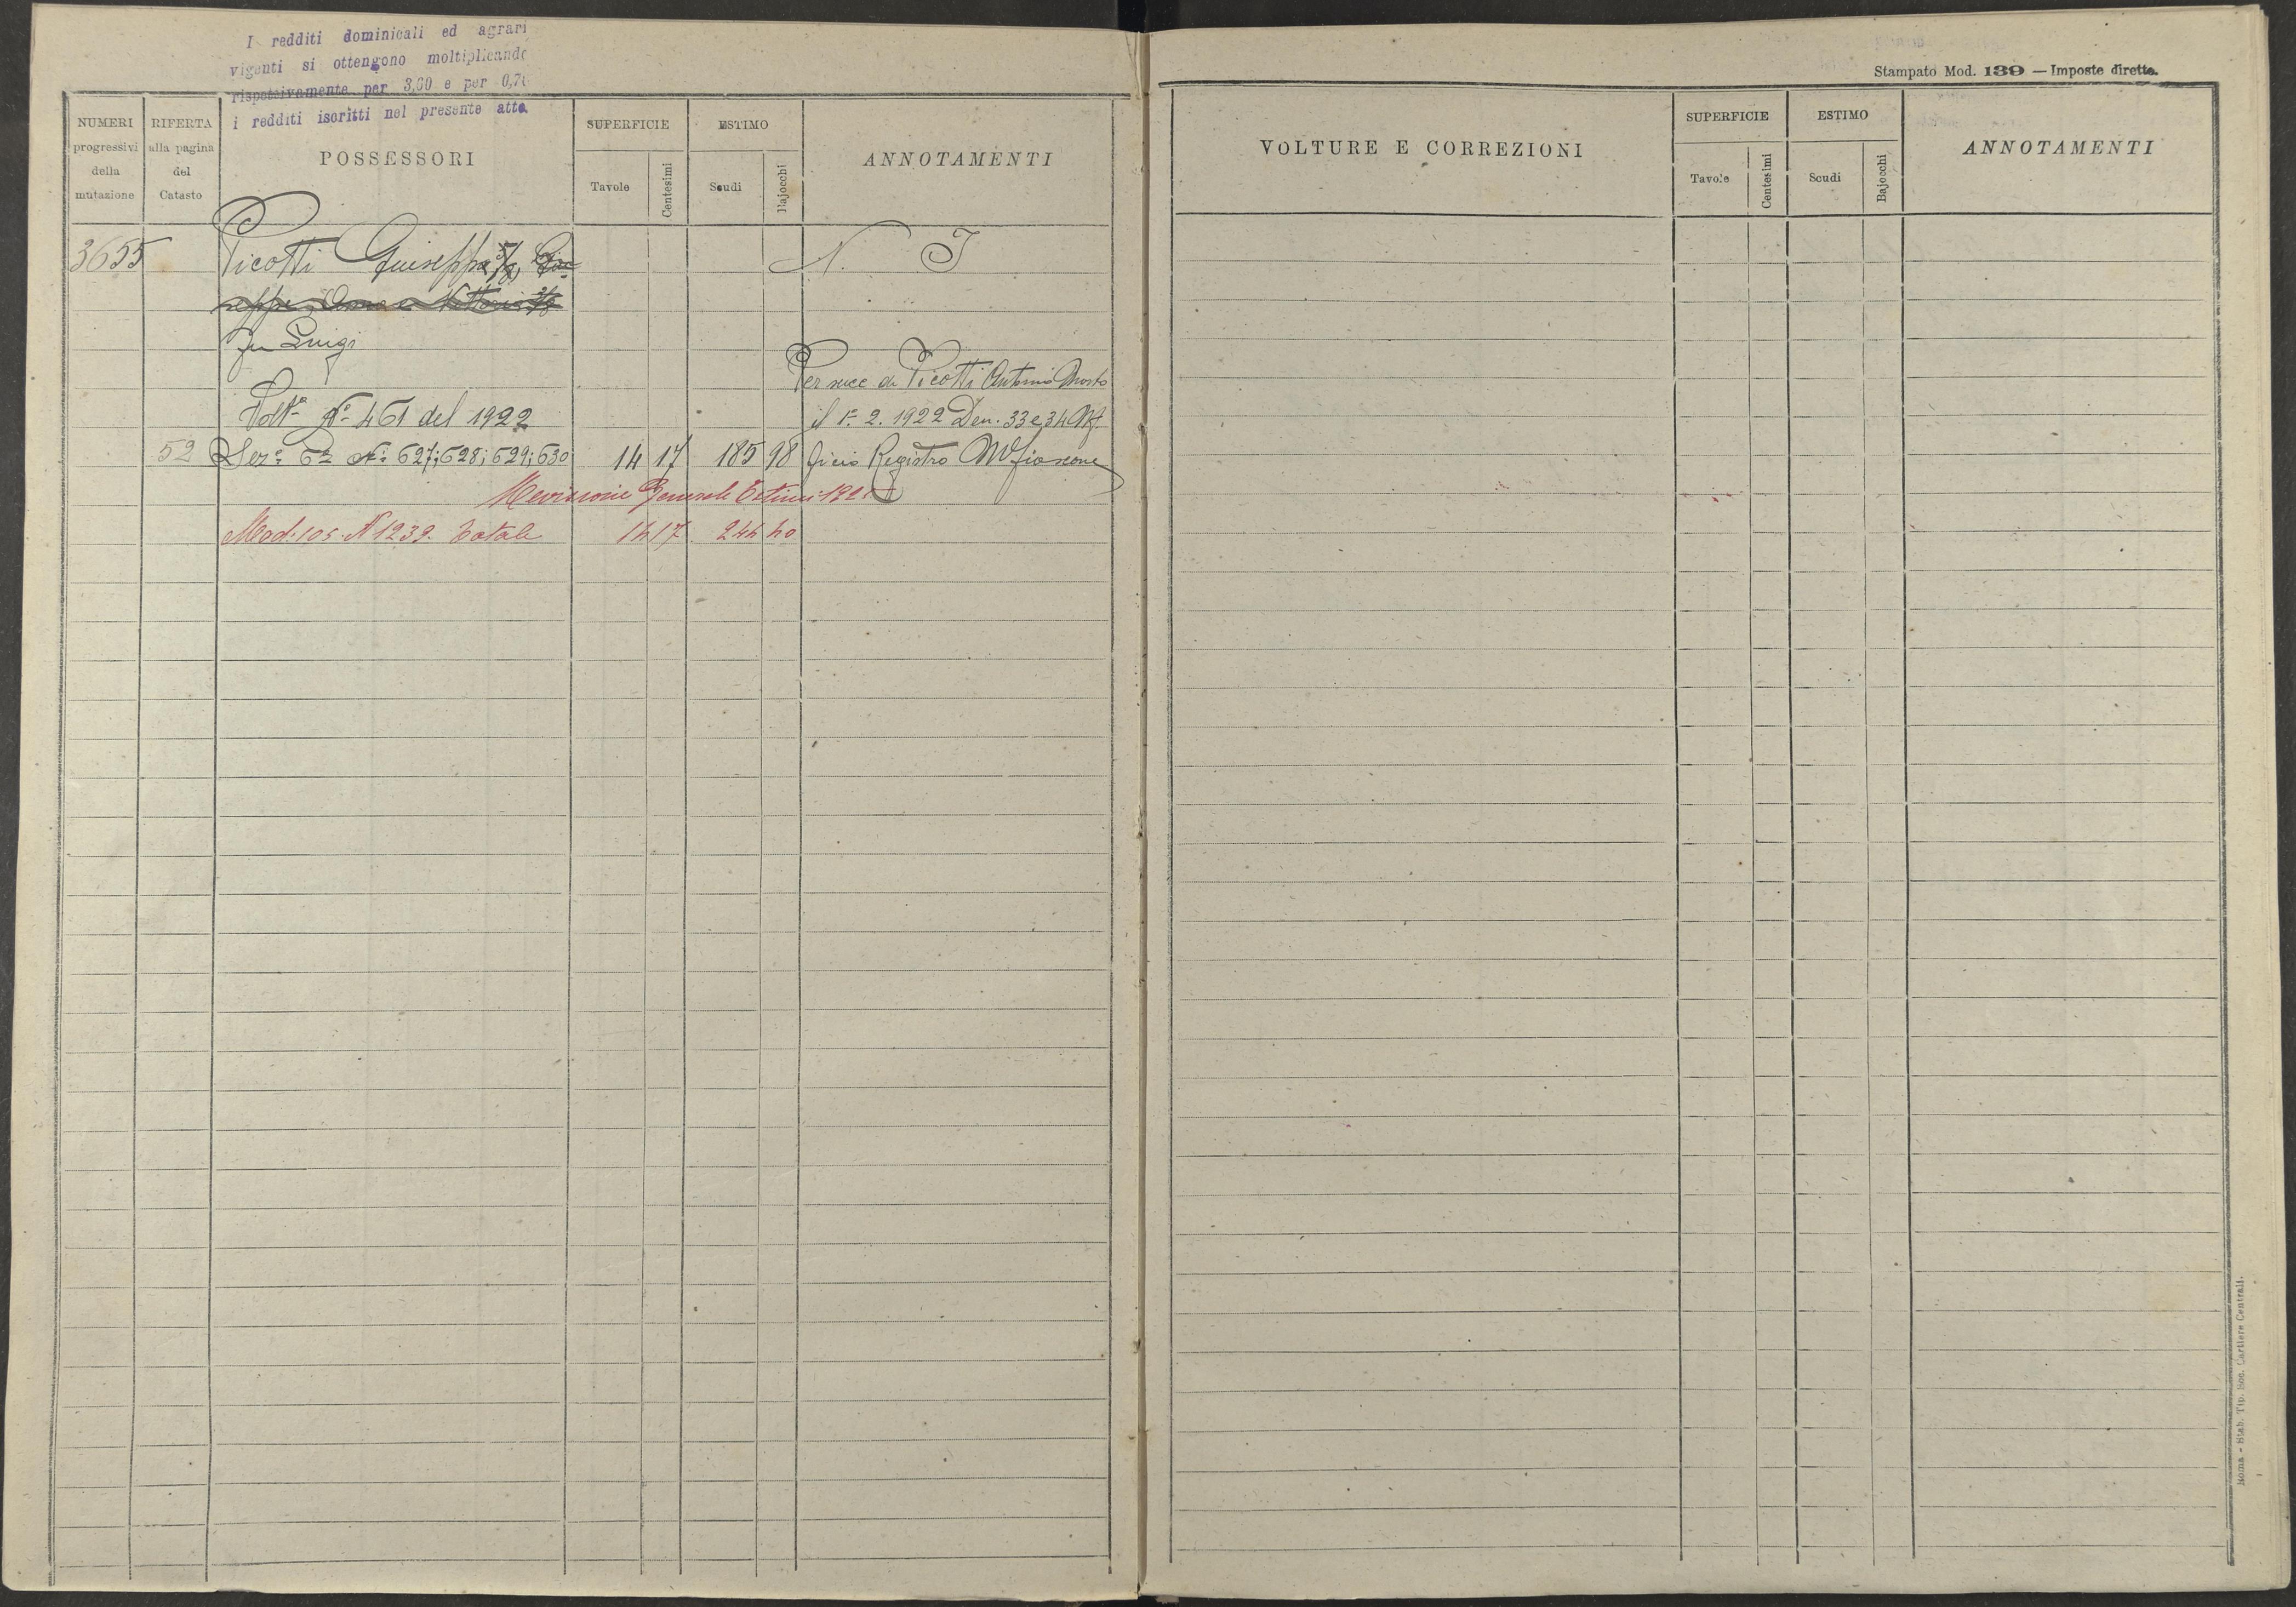 I redditi dominicali ed agrari
vigenti si ottengono moltiplicando
rispetsivamente per 3,60 e per 0,70
i redditi iscritti nel presente atto.
NUMERI
progressivi
della
mutazione
RIFERTA
alla pagina
del
Catasto
POSSESSORI
SUPERFICIE
Tavole
Centesimi
ESTIMO
Scudi
Bajocchi
ANNOTAMENTI
3655 Picotti Giuseppa 5/8, N. I
Anna e Vittoria 3/8
fu Luigi
Per succ di Picotti Antonio Morto
Volta No 461 del 1922 il 1o 2. 1922 Den. 33 e 34 Uf
52 Sez. 6a No 627; 628; 629; 630 14 17 185 98 ficio Registro Mfiascone
Revisione Generale Estimi 192
Mod. 105. N 1239. Totale 14 17 244 40
Stampato Mod. 139 — Imposte dirette.
VOLTURE E CORREZIONI
SUPERFICIE
Tavole
Centesimi
ESTIMO
Scudi
Bajocchi
ANNOTAMENTI
Roma - Stab. Tip. Soc. Cartiere Centrali.